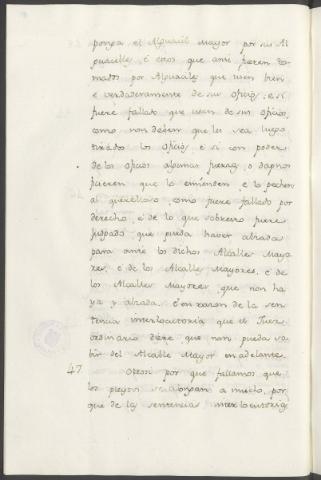 ponga el Alguacil Mayor por sus Al
guaciles, é estos que ansi fueren to
mados por Alguaciles que usen bien
e verdaderamente de sus oficios, e si
fuere fallado que usen de sus oficios,
como non deben que les sea luego
tirados los oficios, e si con poder
de los oficios algunas fuerzas, o daños
ficieren que lo emienden, e lo pechen
al querelloso, como fuere fallado por
derecho, e de lo que sobresto fuere
juzgado que pueda haver alzada
para ante los dichos Alcalles Mayo
res, é de los Alcalles Mayores, é de
los Alcalles Mayores, que non ha
ya y alzada. E en razon de la sen
tencia interlocutoria que el Juez
ordinario diere que non pueda su
bir del Alcalle Mayor en adelante.
47 Otrosi por que fallamos que
los pleytos se alongan a mucho, por
que de las sentencias interlocutorias